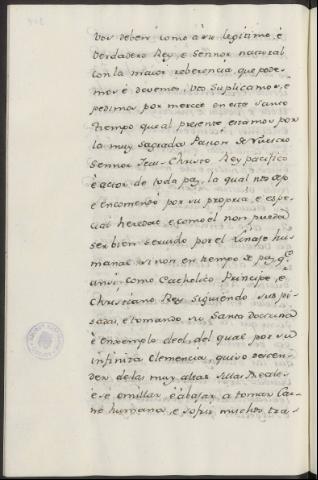 vos deben, como à su legitimo, é
verdadero Rey, e Sennor natural
con la maior reberencia, que pode-
mos é devemos, Vos Suplicamos, é
pedimos por merced en este Santo
tiempo que al presente estamos por
la muy Sagrada Pasion de Nuestro
Sennor Jesu-Christo Rey pacifico
é actor de toda paz, la qual nos dejo
é encomendó por su propria, é espe-
cial heredat, e como él non pueda
ser bien servido por el Linaje hu-
manal si non en tiempo de paz, q.e
ansi, como Catholico Principe, é
Christiano Rey siguiendo sus pi-
sadas, e tomando su Santa Doctrina
é enxemplo de el, del qual por su
infinita Clemencia, quiso descen-
der de las muy altas Sillas Reales
é se omillar, é abajar a tomar Car-
ne humana, e sofrir muchos tra-